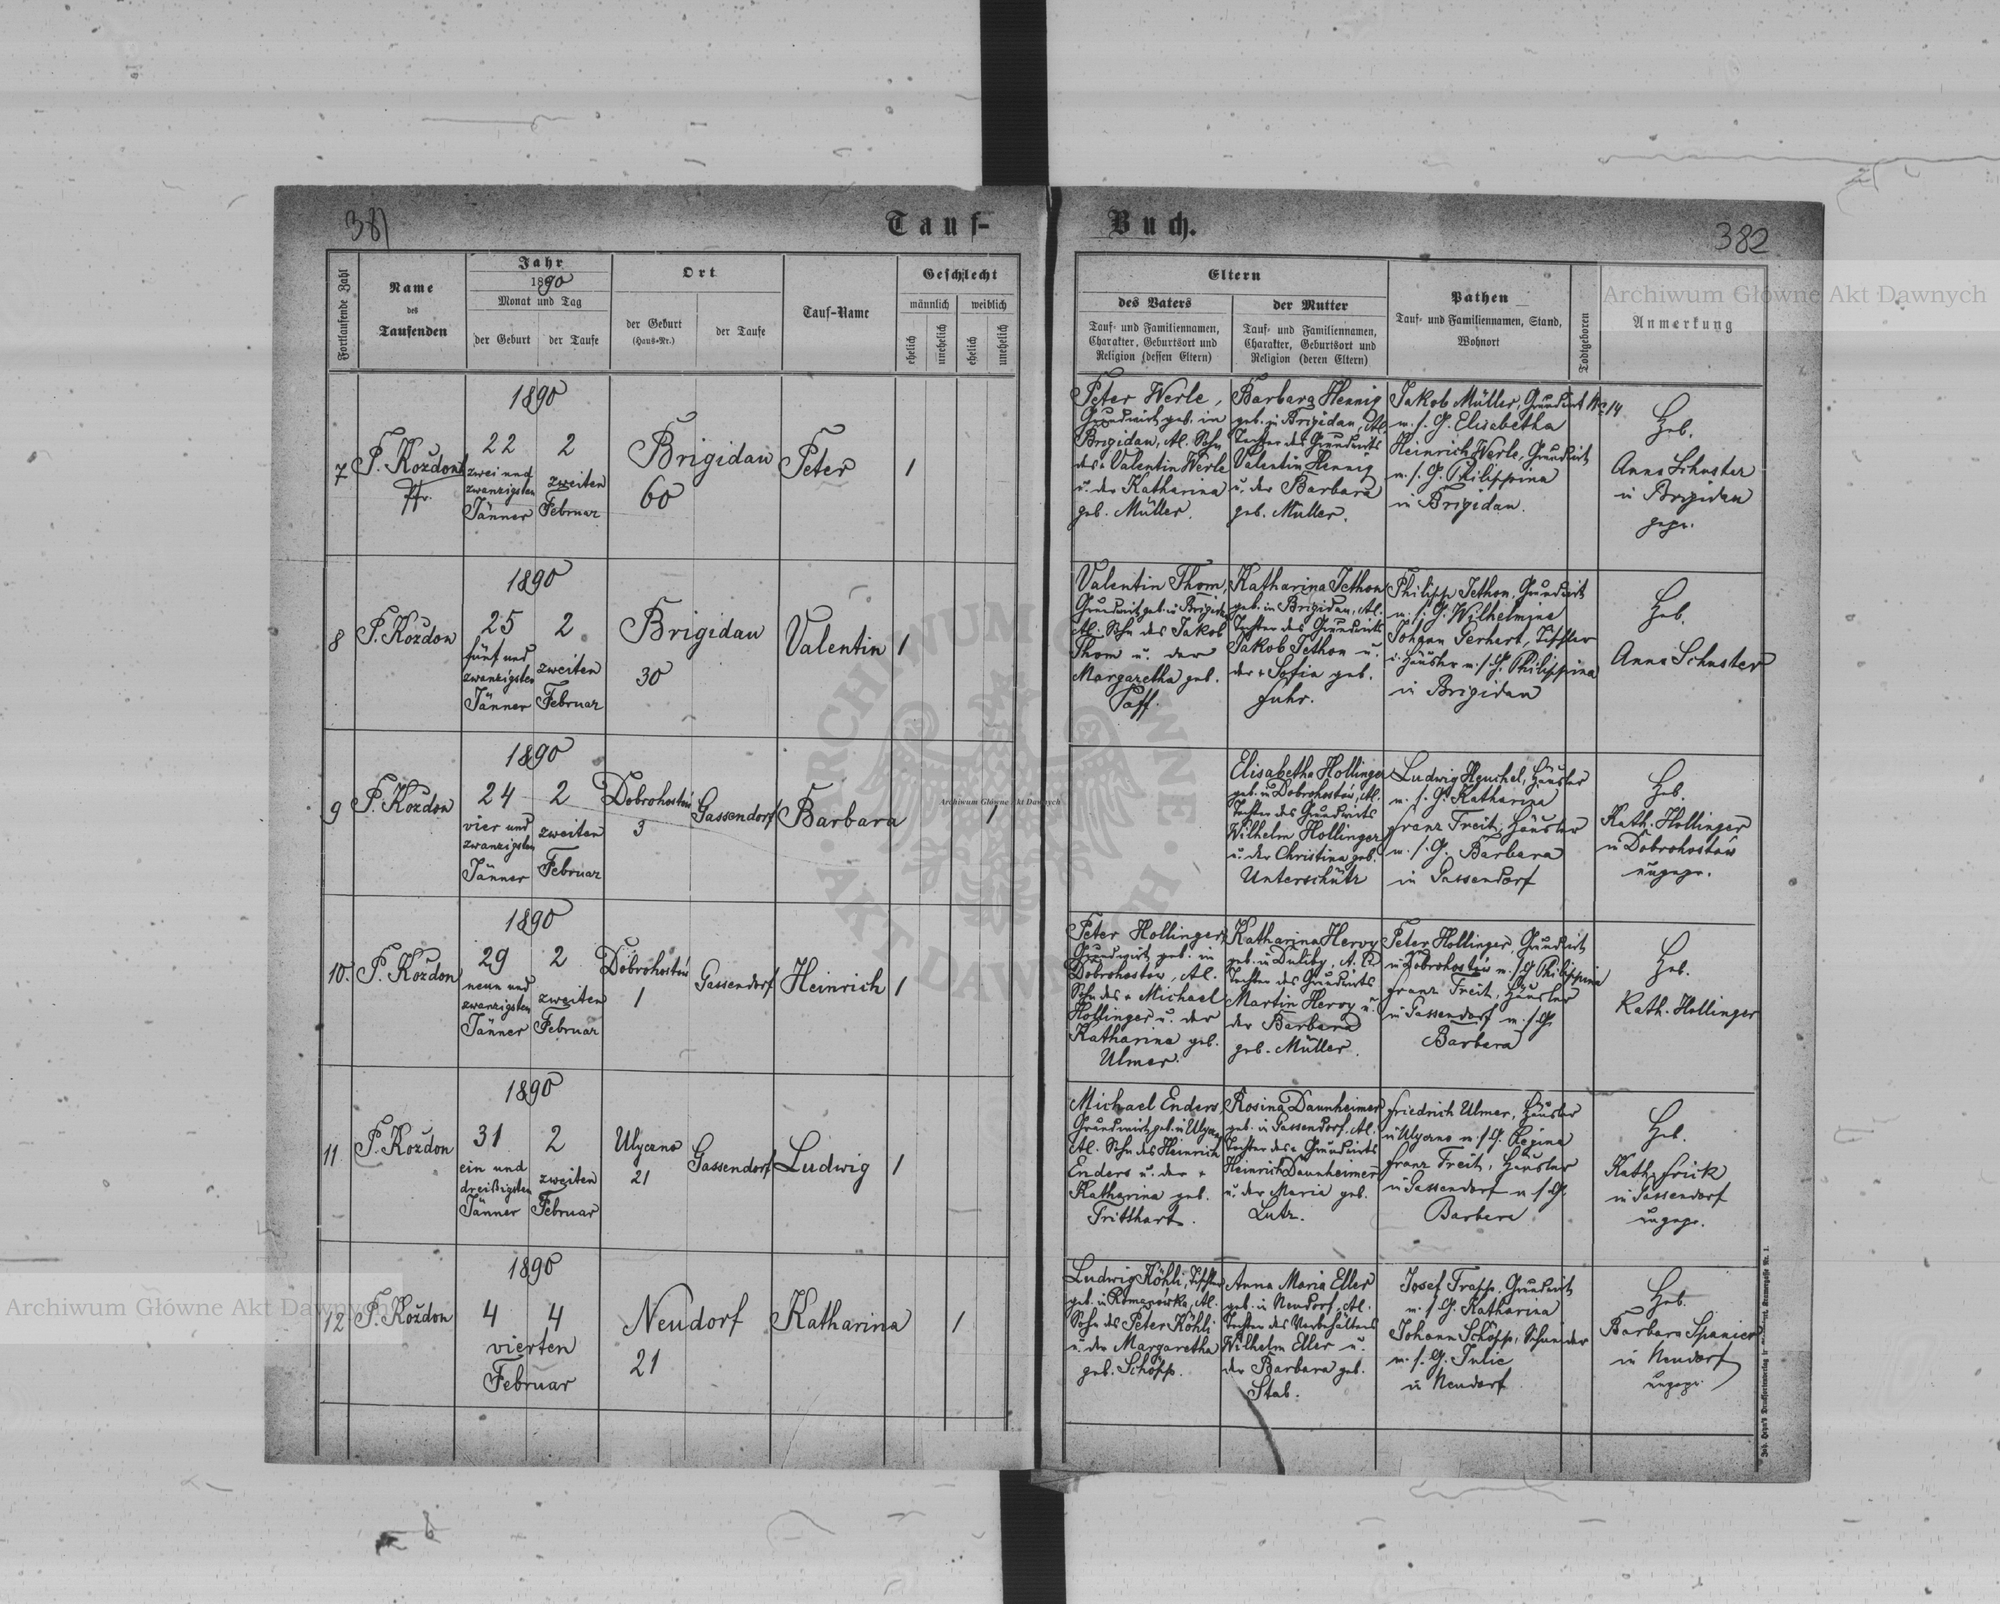 381
Tauf-
Fortlaufende Zahl
Name
des
Taufenden
Jahr
1890
Monat und Tag
der Geburt
der Taufe
Ort
der Geburt
(Haus-Nr.)
der Taufe
Tauf-Name
Geschlecht
männlich
weiblich
ehelich
unehelich
ehelich
unehelich
7
F. Kozdon
Pfr.
1890
22
zwei und
zwanzigsten
Jänner
2
zweiten
Februar
Brigidau
60
Peter
1
8
F. Kozdon
1890
25
fünf und
zwanzigsten
Jänner
2
zweiten
Februar
Brigidau
30
Valentin
1
9
F. Kozdon
1890
24
vier und
zwanzigsten
Jänner
2
zweiten
Februar
Dobrohostów
3
Gassendorf
Barbara
1
10.
F. Kozdon
1890
29
neun und
zwanzigsten
Jänner
2
zweiten
Februar
Dobrohostów
1
Gassendorf
Heinrich
1
11
F. Kozdon
1890
31
ein und
dreißigsten
Jänner
2
zweiten
Februar
Ulyczno
21
Gassendorf
Ludwig
1
12
F. Kozdon
1890
4
4
vierten
Februar
Neudorf
21
Katharina
1
Buch.
382
Eltern
des Vaters
Tauf- und Familiennamen,
Charakter, Geburtsort und
Religion (dessen Eltern)
der Mutter
Tauf- und Familiennamen,
Charakter, Geburtsort und
Religion (deren Eltern)
Pathen
Tauf- und Familiennamen, Stand,
Wohnort
Todtgeboren
Anmerkung
Peter Werle,
Grundwirt geb. in
Brigidau, Al. Sohn
des Valentin Werle
u. der Katharina
geb. Müller.
Barbara Hennig
geb. in Brigidau, Al.
Tochter des Grundwirts
Valentin Hennig
u. der Barbara
geb. Müller.
Jakob Müller, Grundwirt No 14
m. s. G. Elisabetha
Heinrich Werle, Grundwirt
m. s. G. Philippina
in Brigidau.
Heb.
Anna Schuster
in Brigidau
gepr.
Valentin Thom,
Grundwirt geb. in Brigidau
Al. Sohn des Jakob
Thom u. der
Margaretha geb.
Paff.
Katharina Jethon
geb. in Brigidau, Al.
Tochter des Grundwirts
Jakob Jethon u.
der + Sofia geb.
Fuhr.
Philipp Jethon, Grundwirt
m. s. G. Wilhelmine
Johann Gerhart, Tischler
u. Häusler m. s. G. Philippina
in Brigidau
Heb.
Anna Schuster
Elisabetha Hollinger
geb. in Dobrohostów, Al.
Tochter des Grundwirts
Wilhelm Hollinger
u. der Christina geb.
Unterschütz
Ludwig Heuchel, Häusler
m. s. G. Katharina
Franz Freit, Häusler
m. s. G. Barbara
in Gassendorf
Heb.
Kath. Hollinger
in Dobrohostów
ungepr.
Peter Hollinger,
Grundwirt geb. in
Dobrohostów, Al.
Sohn des + Michael
Hollinger u. der
Katharina geb.
Ulmer.
Katharina Hervy
geb. in Duliby, A.
Tochter des Grundwirts
Martin Hervy u.
der Barbara
geb. Müller.
Peter Hollinger, Grundwirt
in Dobrohostów m. s. G. Philippina
Franz Freit, Häusler
in Gassendorf m. s. G.
Barbara
Heb.
Kath. Hollinger
Michael Enders,
Grundwirt geb. in Ulyczno
Al. Sohn des Heinrich
Enders u. der +
Katharina geb.
Tritthart.
Rosina Daunheimer
geb. in Gassendorf, Al.
Tochter des + Grundwirts
Heinrich Daunheimer
u. der Maria geb.
Lutz.
Friedrich Ulmer, Häusler
in Ulyczno m. s. G. Regina
Franz Freit, Häusler
in Gassendorf m. s. G.
Barbara
Heb.
Kath. Frück
in Gassendorf
ungepr.
Ludwig Köhli, Tischler
geb. in Romanówka, Al.
Sohn des Peter Köhli
u. der Margaretha
geb. Schöpp.
Anna Maria Eller
geb. in Neudorf, Al.
Tochter des Vorbehälters
Wilhelm Eller u.
der Barbara geb.
Stab.
Josef Trapp, Grundwirt
m. s. G. Katharina
Johann Schöpp, Schneider
m. s. G. Julie
in Neudorf
Heb.
Barbara Spanier
in Neudorf
ungepr.
Archiwum Główne Akt Dawnych
Archiwum Główne Akt Dawnych
Archiwum Główne Akt Dawnych
ARCHIWUM GŁÓWNE · AKT DAWNYCH ·